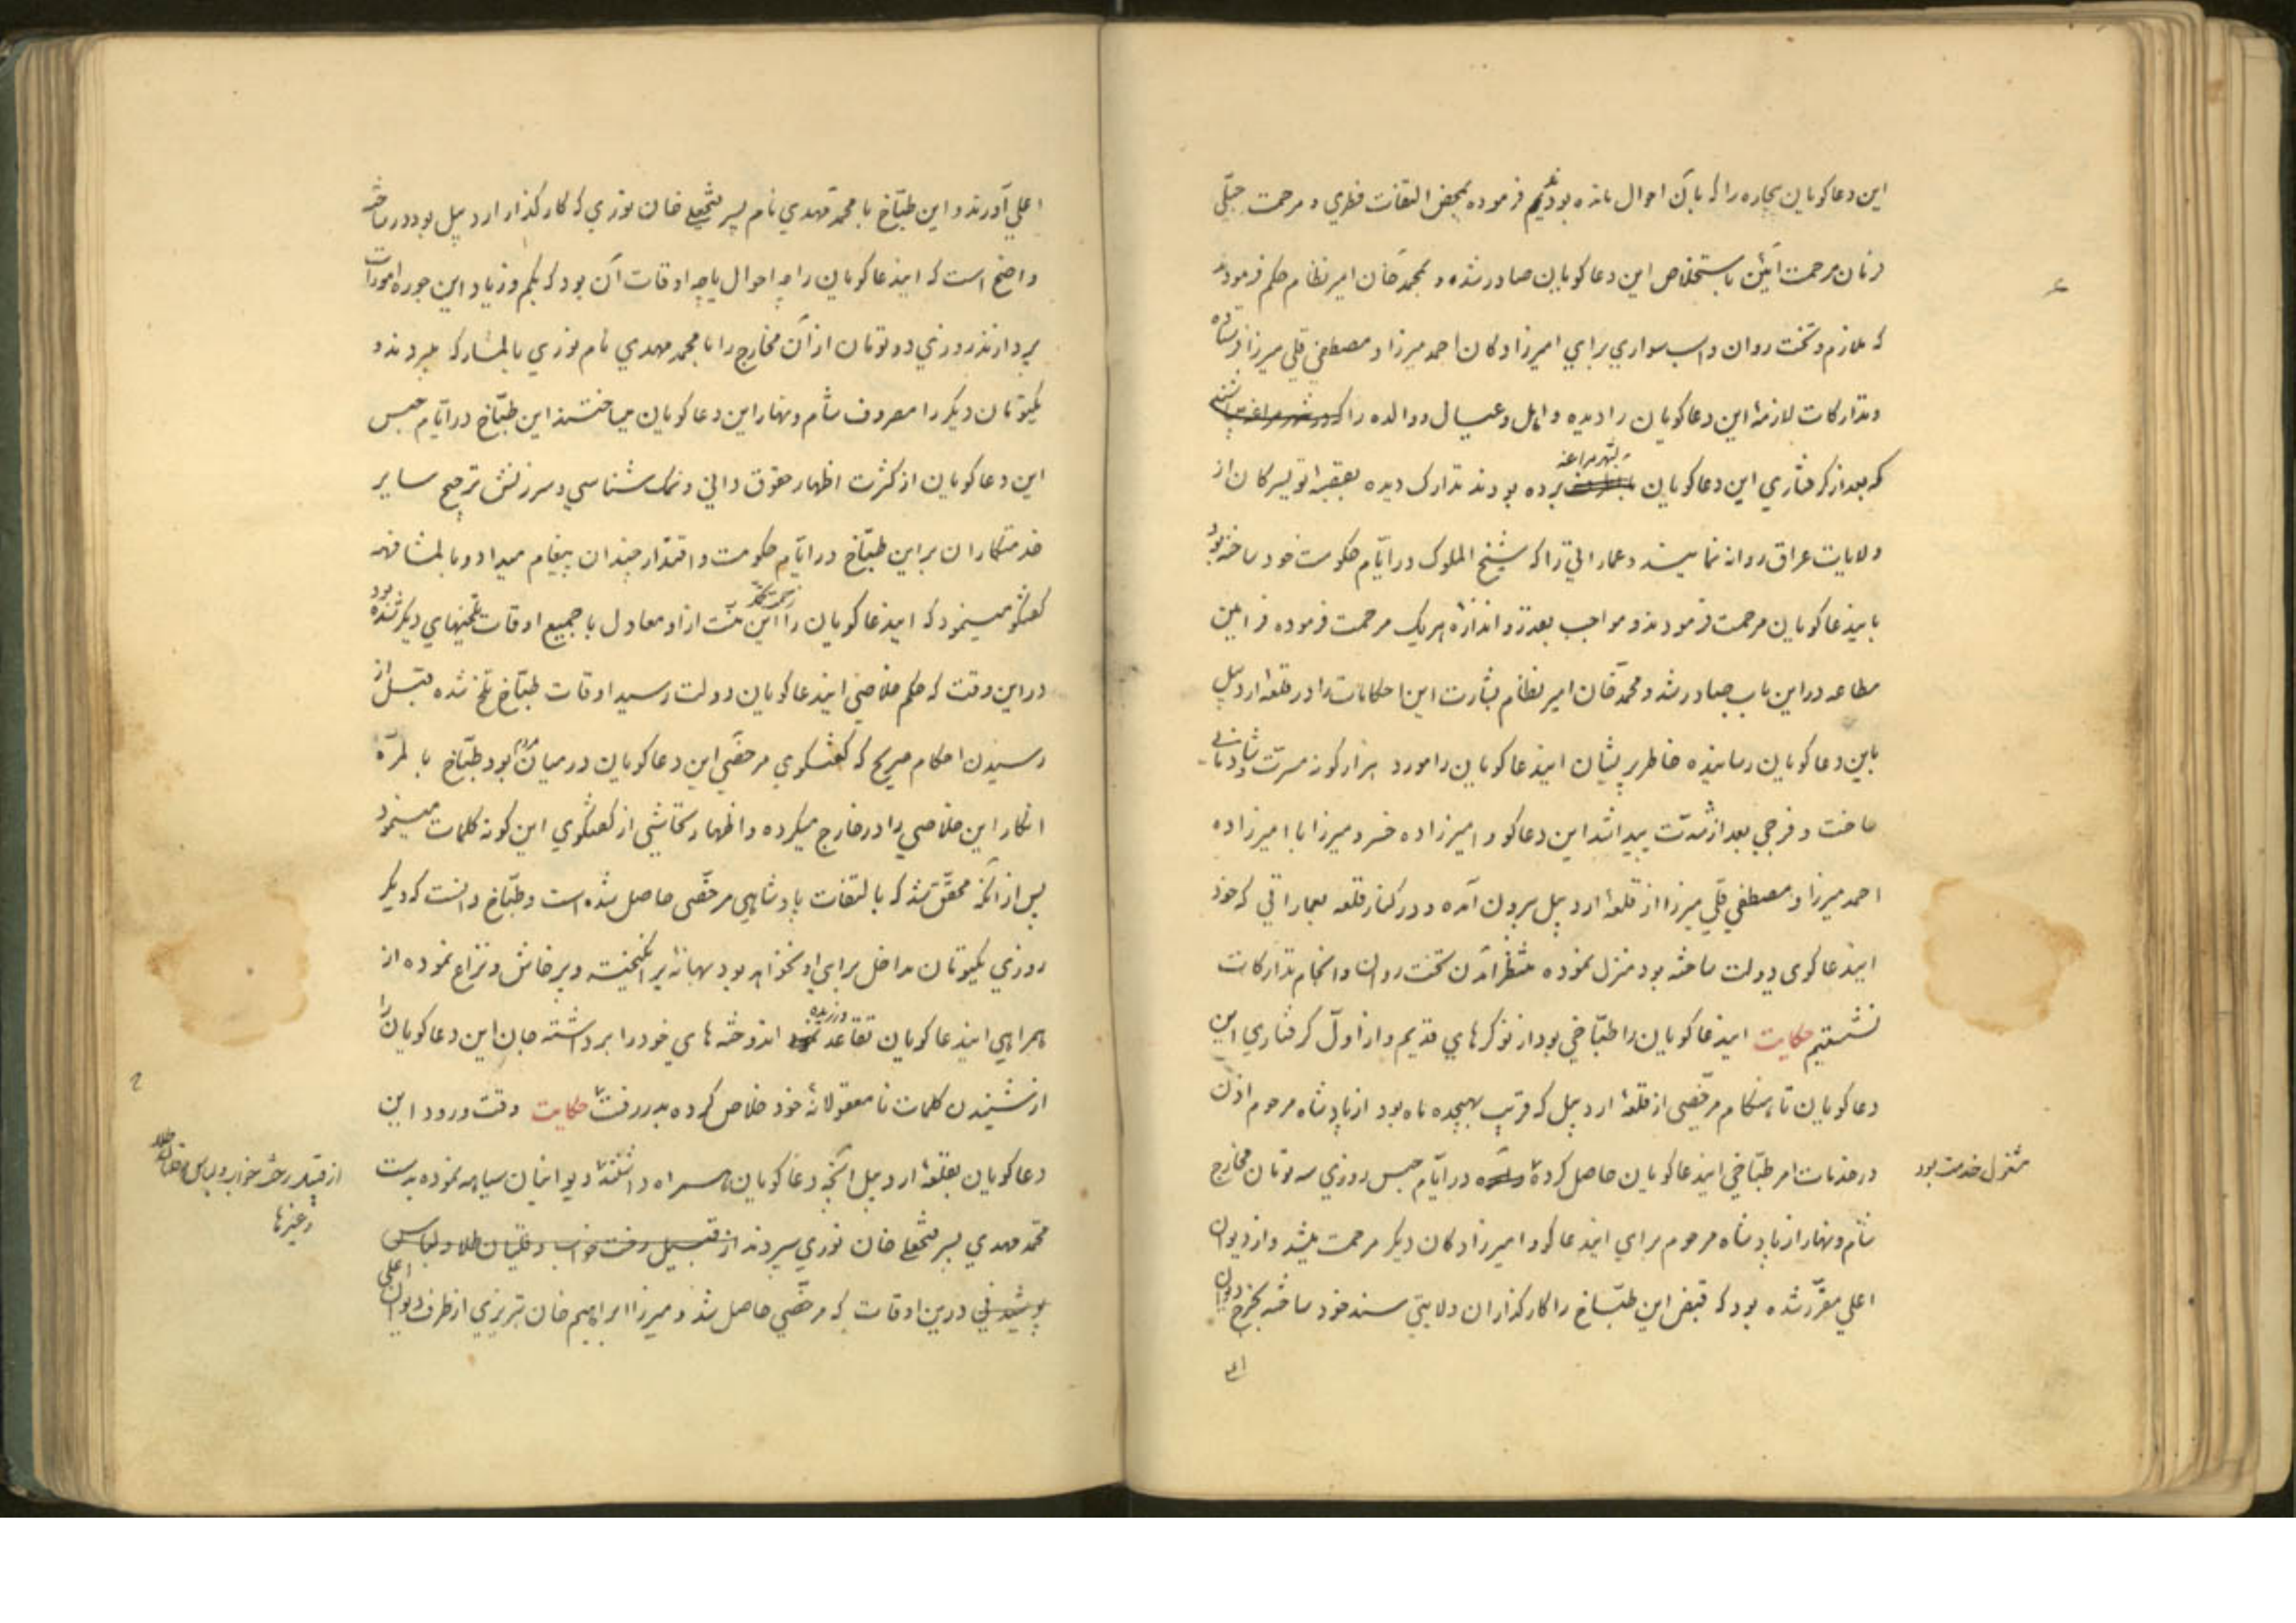 این دعاکویان بیچاره را که بآن احوال مانده بودیم فرموده بمحض التفات فطري و مرحمت جبلّی
فرمان مرحمت آئین باستخلاص این دعاکویان صادر شده و بمحمّد خان امیر نظام حکم فرمودند
که ملازم و تخت روان و اسب سواري براي امیرزادکان احمد میرزا و مصطفي قلي میرزا فرستاده
و تدارکات لازمهٔ این دعاکویان را دیده و اهل و عیال و والده را که در شهر مراغه
که بعد از کرفتاري این دعاکویان بشهر مراغه برده بودند تدارک دیده بقصبهٔ تویسرکان از
ولایات عراق روانه نمایند و عماراتي را که شیخ الملوک در ایّام حکومت خود ساخته بود
باینداعاکویان مرحمت فرمودند و مواجب بقدر و اندازه هر یک مرحمت فرموده فرامین
مطاعه در این باب صادر شد و محمّد خان امیر نظام بشارت این حکایات را در قلعهٔ اردبیل
باین دعاکویان رسانیده خاطر پریشان ایندعاکویان را مورد هزار کونه مسرّت و شادمانی
ساخت و فرجي بعد از شدّت پیدا شد این دعاکو و امیرزاده خسرو میرزا با امیرزاده
احمد میرزا و مصطفي قلي میرزا از قلعهٔ اردبیل بیرون آمده و در کنار قلعه بعماراتي که خود
ایندعاکوی دولت ساخته بود منزل نموده منتظر آمدن تخت روان و انجام تدارکات
نشستیم حکایت ایندعاکویان را طبّاخي بود از نوکرهاي قدیم و از اوّل کرفتاري این
دعاکویان تا هنکام مرخّصی از قلعهٔ اردبیل که قریب بهیجده ماه بود از پادشاه مرحوم اذن
در خدمات امر طبّاخي ایندعاکویان حاصل کرده در ایّام حبس روزي سه تومان مخارج
شام و نهار از پادشاه مرحوم براي ایندعاکو و امیرزادکان دیکر مرحمت میشد و از دیوان
اعلي مقرّر شده بود که قبض این طبّاخ را کارکذاران ولایتي سند خود ساخته بخرج دیوان
اعلي
مشغول خدمت بود
اعلي آورند و این طبّاخ با محمّد مهدي نام پسر فتحعلي خان نوري که کارکذار اردبیل بود در ساخته
واضح است که ایندعاکویان را چه احوال یا چه اوقات آن بود که بکم و زیاد این جوره امورات
بپردازند روزي دو تومان از آن مخارج را با محمد مهدي نام نوري بالمشارکه میبردند و
یکتومان دیکر را مصروف شام و نهار این دعاکویان میساختند این طبّاخ در ایّام حبس
این دعاکویان از کثرت اظهار حقوق داني و نمک شناسي و سرزنش ترجیح سایر
خدمتکاران بر این طبّاخ در ایّام حکومت و اقتدار چندان پیغام میداد و بالمشافهه
کفتکو مینمود که ایندعاکویان را این منّت از او معادل با جمیع اوقات تلخیهاي دیکر شده بود
در این وقت که حکم خلاصي ایندعاکویان دولت رسید اوقات طبّاخ تلخ شده قبل از
رسیدن احکام صریح که کفتکوي مرخّصي این دعاکویان در میان مردم بود طبّاخ بالمرّه
انکار این خلاصي را در خارج میکرده و اظهار تحاشي از کفتکوي این کونه کلمات مینمود
پس از آنکه محقّق شد که بالتفات پادشاهي مرخّصی حاصل شده است و طبّاخ دانست که دیکر
روزي یکتومان مداخل براي او نخواهد بود بهانه بر انکیخته و پرخاش و نزاع نموده از
همراهي ایندعاکویان تقاعد ورزیده اندوخته هاي خود را برداشته جان این دعاکویان را
از شنیدن کلمات نامعقولانهٔ خود خلاص کرده بدر رفت حکایت وقت ورود این
دعاکویان بقلعهٔ اردبیل آنچه دعاکویان همراه داشتند دیوانیان سیاهه نموده بدست
محمّد مهدي پسر فتحعلي خان نوري سپردند از قبیل رخت خواب و قلیان طلا و لباس
پوشیدني درین اوقات که مرخّصي حاصل شد و میرزا ابراهیم خان تبریزي از طرف دیوان اعلي
از قبیل رخت خواب و لباس و قلیان طلا
و غیرها